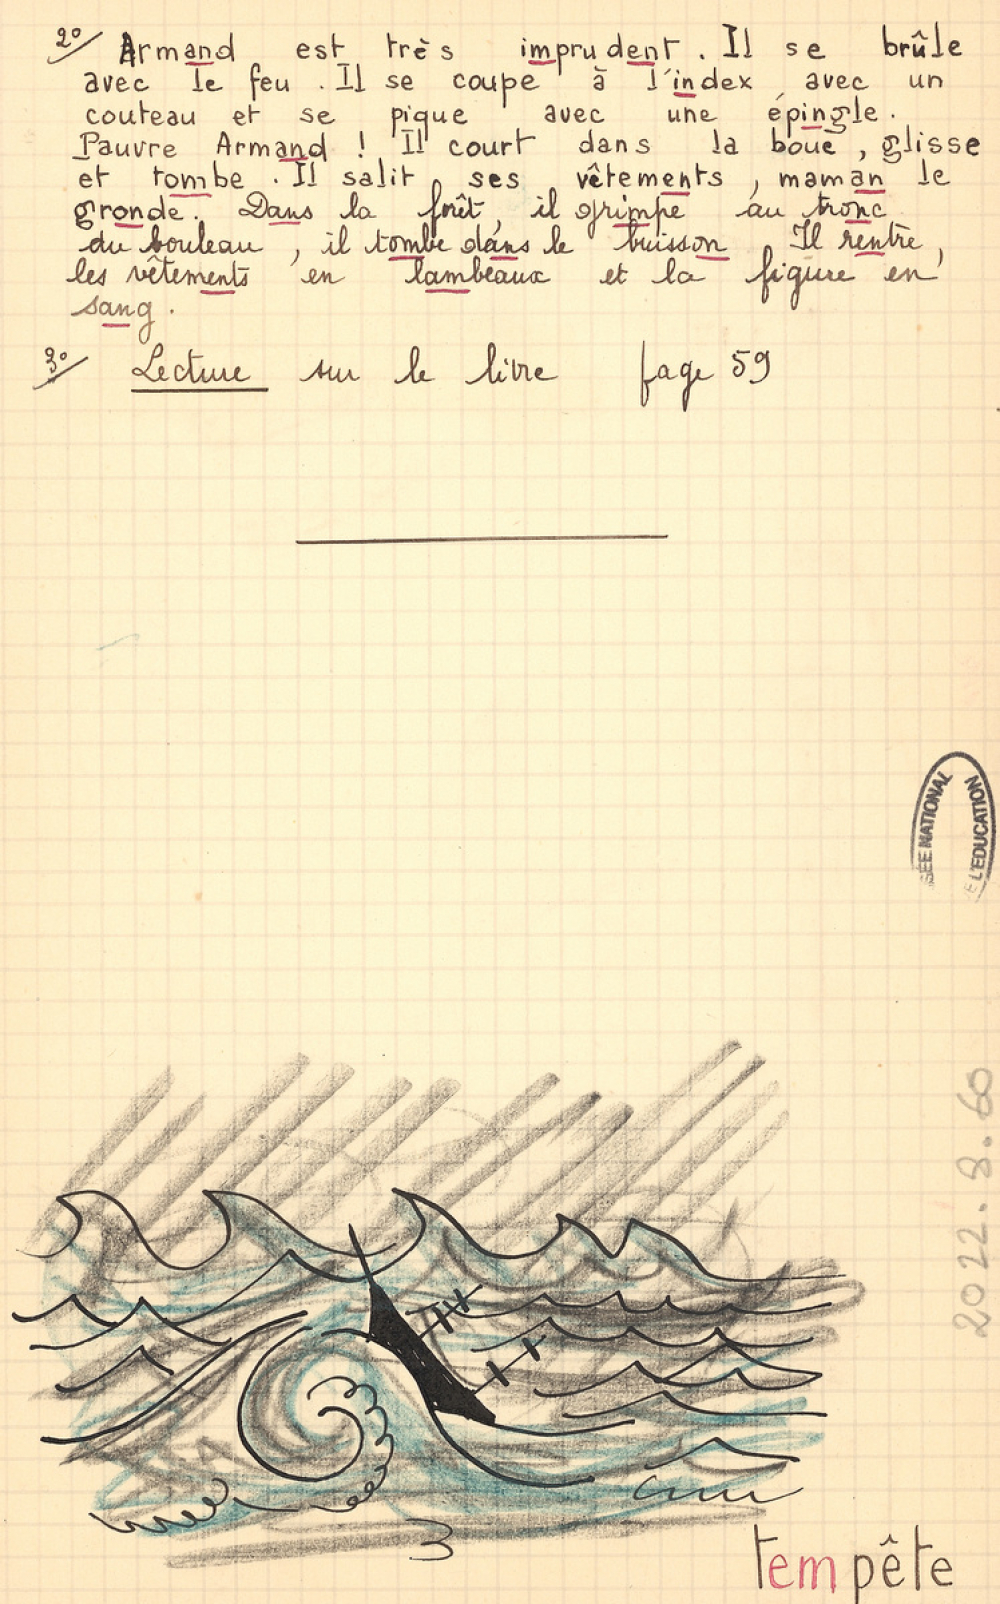 2º/ Armand est très imprudent. Il se brûle
avec le feu. Il se coupe à l'index avec un
couteau et se pique avec une épingle.
Pauvre Armand ! Il court dans la boue, glisse
et tombe. Il salit ses vêtements, maman le
gronde. Dans la forêt, il grimpe au tronc
du bouleau, il tombe dans le buisson. Il rentre,
les vêtements en lambeaux et la figure en
sang.
3º/ Lecture sur le livre page 59
SEE NATIONAL
E L'EDUCATION
2022.8.60
tempête